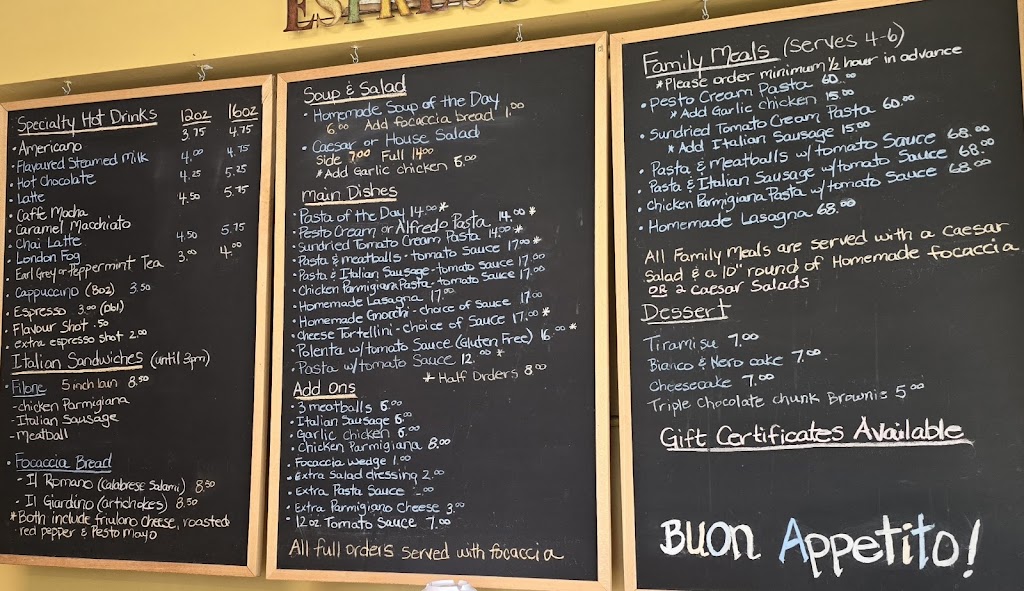 ESPRESSO
Specialty Hot Drinks 12oz 16oz
• Americano 3.75 4.75
• Flavoured Steamed Milk 4.00 4.75
• Hot Chocolate 4.25 5.25
• Latte 4.50 5.75
• Caffe Mocha
• Caramel Macchiato
• Chai Latte 4.50 5.75
• London Fog
• Earl Grey or Peppermint Tea 3.00 4.00
• Cappuccino (8oz) 3.50
• Espresso 3.00 (Dbl)
• Flavour Shot .50
• extra espresso shot 2.00
Italian Sandwiches (until 3pm)
• Filone 5 inch bun 8.50
- chicken Parmigiana
- Italian Sausage
- Meatball
• Focaccia Bread
- Il Romano (Calabrese Salami) 8.50
- Il Giardino (artichokes) 8.50
* Both include friulano cheese, roasted
red pepper & Pesto Mayo
Soup & Salad
• Homemade Soup of the Day
6.00 Add focaccia bread 1.00
• Caesar or House Salad
Side 7.00 Full 14.00
* Add Garlic chicken 6.00
Main Dishes
• Pasta of the Day 14.00 *
• Pesto Cream or Alfredo Pasta 14.00 *
• Sundried Tomato Cream Pasta 14.00 *
• Pasta & meatballs - tomato Sauce 17.00 *
• Pasta & Italian Sausage - tomato Sauce 17.00
• Chicken Parmigiana Pasta - tomato Sauce 17.00
• Homemade Lasagna 17.00
• Homemade Gnocchi - choice of Sauce 17.00
• Cheese Tortellini - choice of Sauce 17.00 *
• Polenta w/tomato Sauce (Gluten Free) 16.00 *
• Pasta w/tomato Sauce 12.00 *
* Half Orders 8.00
Add Ons
• 3 meatballs 6.00
• Italian Sausage 6.00
• Garlic chicken 6.00
• Chicken Parmigiana 8.00
• Focaccia wedge 1.00
• Extra Salad dressing 2.00
• Extra Pasta Sauce
• Extra Parmigiano Cheese 3.00
• 12oz Tomato Sauce 7.00
All full orders served with focaccia
Family Meals (serves 4-6)
* Please order minimum ½ hour in advance
• Pesto Cream Pasta 60.00
* Add Garlic chicken 15.00
• Sundried Tomato Cream Pasta 60.00
* Add Italian Sausage 15.00
• Pasta & Meatballs w/ tomato Sauce 68.00
• Pasta & Italian Sausage w/ tomato Sauce 68.00
• Chicken Parmigiana Pasta w/ tomato Sauce 68.00
• Homemade Lasagna 68.00
All Family Meals are served with a Caesar
Salad & a 10" round of Homemade focaccia
OR 2 Caesar Salads
Dessert
Tiramisu 7.00
Bianco & Nero cake 7.00
Cheesecake 7.00
Triple Chocolate chunk Brownie 5.00
Gift Certificates Available
Buon Appetito!